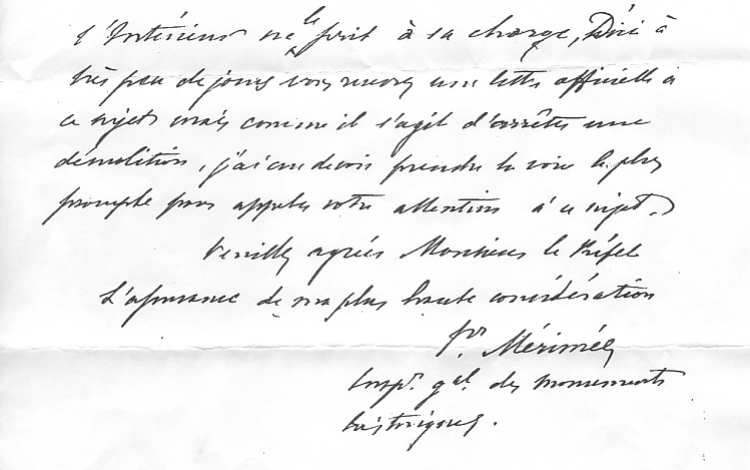 l'Intérieur ne le prit à sa charge, D'ici à
très peu de jours vous recevrez une lettre officielle à
ce sujet mais comme il s'agit d'arrêter une
démolition, j'ai cru devoir prendre la voie la plus
prompte pour appeler votre attention à ce sujet.
Veuillez agréer Monsieur le Préfet
L'assurance de ma plus haute considération
pr. Mérimée
Inspr. gal. des monuments
historiques.